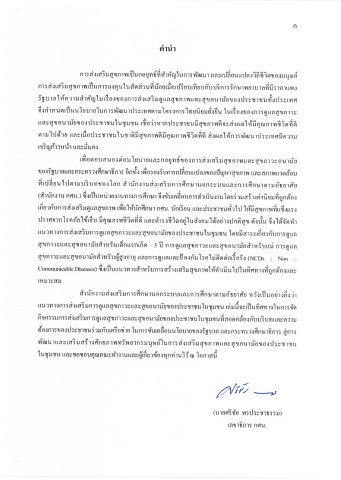 ก
คำนำ
การส่งเสริมสุขภาพเป็นกลยุทธ์ที่สำคัญในการพัฒนา และเปลี่ยนแปลงวิถีชีวิตของมนุษย์
การส่งเสริมสุขภาพเป็นการลงทุนในสัดส่วนที่น้อยเมื่อเปรียบเทียบกับบริการรักษาพยาบาลที่มีราคาแพง
รัฐบาลให้ความสำคัญในเรื่องของการส่งเสริมดูแลสุขภาพและสุขอนามัยของประชาชนทั้งประเทศ
จึงกำหนดเป็นนโยบายในการพัฒนาประเทศตามโครงการไทยนิยมยั่งยืน ในเรื่องของการดูแลสุขภาวะ
และสุขอนามัยของประชาชนในชุมชน เชื่อว่าหากประชาชนมีสุขภาพดีจะส่งผลให้มีคุณภาพชีวิตที่ดี
ตามไปด้วย และเมื่อประชาชนในชาติมีสุขภาพดีมีคุณภาพชีวิตที่ดี ส่งผลให้การพัฒนาประเทศมีความ
เจริญก้าวหน้าและมั่นคง
เพื่อตอบสนองต่อนโยบายและกลยุทธ์ของการส่งเสริมสุขภาพและสุขภาวะอนามัย
ของรัฐบาลและกระทรวงศึกษาธิการ อีกทั้ง เพื่อรองรับการเปลี่ยนแปลงของปัญหาสุขภาพ และสภาพแวดล้อม
ที่เปลี่ยนไปตามบริบทของโลก สำนักงานส่งเสริมการศึกษานอกระบบและการศึกษาตามอัธยาศัย
(สำนักงาน กศน.) ซึ่งเป็นหน่วยงานทางการศึกษา ซึ่งขับเคลื่อนการดำเนินงานโดยร่วมสร้างค่านิยมที่ถูกต้อง
เกี่ยวกับการส่งเสริมดูแลสุขภาพ เพื่อให้นักศึกษา กศน. นักเรียน และประชาชนทั่วไป ให้มีสุขภาพที่แข็งแรง
ปราศจากโรคภัยไข้เจ็บ มีคุณภาพชีวิตที่ดี และดำรงชีวิตอยู่ในสังคมได้อย่างปกติสุข ดังนั้น จึงได้จัดทำ
แนวทางการส่งเสริมการดูแลสุขภาวะและสุขอนามัยของประชาชนในชุมชน โดยมีสาระเกี่ยวกับการดูแล
สุขภาวะและสุขอนามัยสำหรับเด็กแรกเกิด – 5 ปี การดูแลสุขภาวะและสุขอนามัยสำหรับแม่ การดูแล
สุขภาวะและสุขอนามัยสำหรับผู้สูงอายุ และการดูแลและป้องกันโรคไม่ติดต่อเรื้อรัง (NCDs : Non –
Communicable Diseases) ซึ่งเป็นแนวทางสำหรับการสร้างเสริมสุขภาพให้ดำเนินไปในทิศทางที่ถูกต้องและ
เหมาะสม
สำนักงานส่งเสริมการศึกษานอกระบบและการศึกษาตามอัธยาศัย หวังเป็นอย่างยิ่งว่า
แนวทางการส่งเสริมการดูแลสุขภาวะและสุขอนามัยของประชาชนในชุมชน เล่มนี้จะเป็นทิศทางในการจัด
กิจกรรมการส่งเสริมการดูแลสุขภาวะและสุขอนามัยของประชาชนในชุมชนที่สอดคล้องกับบริบทและความ
ต้องการของประชาชนร่วมกับเครือข่าย ในการขับเคลื่อนนโยบายของรัฐบาล และกระทรวงศึกษาธิการ สู่การ
พัฒนาและเสริมสร้างศักยภาพทรัพยากรมนุษย์ในการส่งเสริมสุขภาพและสุขอนามัยของประชาชน
ในชุมชน และขอขอบคุณคณะทำงานและผู้เกี่ยวข้องทุกท่านไว้ ณ โอกาสนี้
(นายศรีชัย พรประชาธรรม)
เลขาธิการ กศน.